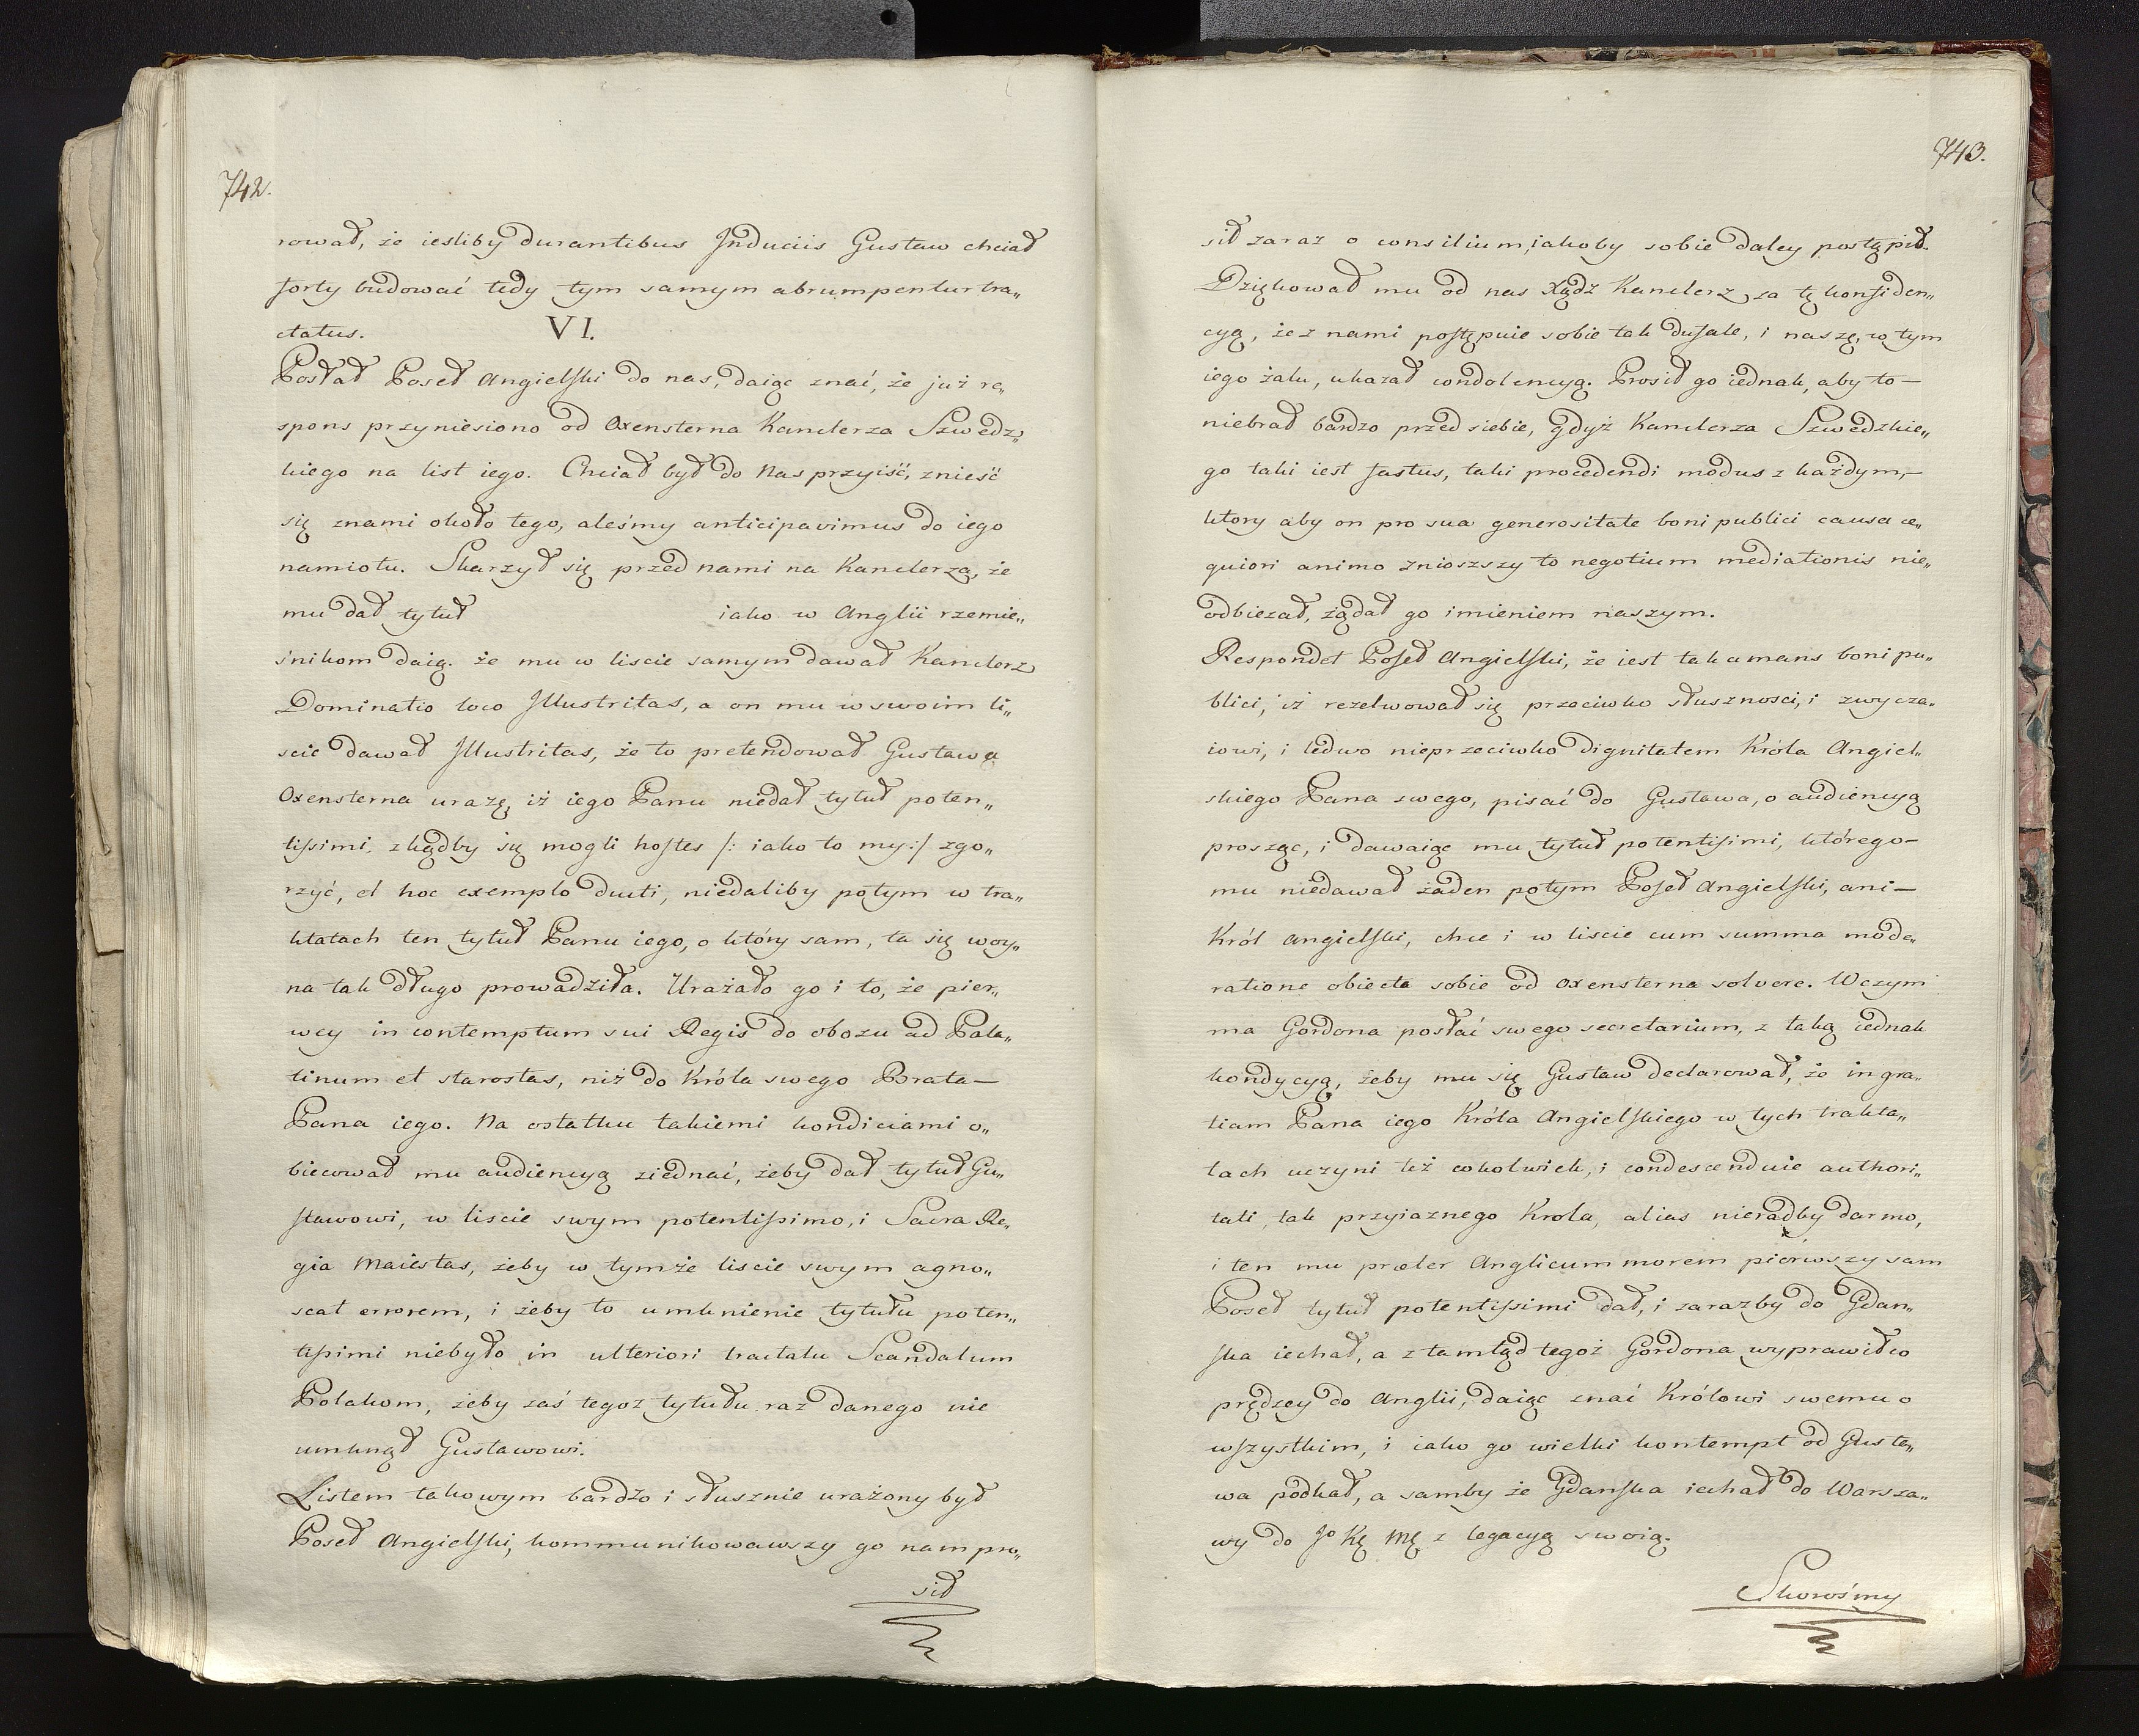 742.
rował, że iesliby durantibus Induciis Gustaw chciał
forty budować tedy tym samym abrumpentur tra„
ctatus. VI.
Posłał Poseł Angielski do nas, daiąc znać, że już re„
spons przyniesiono od Oxensterna Kanclerza Szwedz„
kiego na list iego. Chciał był do Nas przyiść, znieść
się znami około tego, aleśmy anticipavimus do iego
namiotu. Skarzył się przed nami na Kanclerza, że
mu dał tytuł iako w Anglii rzemie„
śnikom daią. że mu w liscie samym dawał Kanclerz
Dominatio loco Illustritas, a on mu w swoim li„
scie dawał Illustritas, że to pretendował Gustawa
Oxensterna urazę, iż iego Panu niedał tytuł poten„
tissimi, zkądby się mogli hostes /: iako to my :/ zgo„
rzyć, et hoc exemplo ducti, niedaliby potym w tra„
ktatach ten tytuł Panu iego, o który sam, ta się woy„
na tak długo prowadziła. Urażało go i to, że pier„
wey in contemptum sui Regis do obozu ad Pala„
tinum et starostas, niż do Króla swego Brata —
Pana iego. Na ostatku takiemi kondiciami o„
biecował mu audiencyą ziednać, żeby dał tytuł Gu„
stawowi, w liscie swym potentissimo, i Sacra Re„
gia Maiestas, żeby w tymże liscie swym agno„
scat errorem, i żeby to umknienie tytułu poten„
tissimi niebyło in ulteriori tractatu Scandalum
Polakom, żeby zaś tegoz tytułu raz danego nie
umknął Gustawowi.
Listem takowym bardzo i słusznie urażony był
Poseł Angielski, kommunikowawszy go nam pro„
sił
743.
sił zaraz o consilium, iakoby sobie daley postąpił.
Dziękował mu od nas Xiądz Kanclerz, za tę konfiden„
cyą, że z nami postępuie sobie tak dufale, i naszę, w tym
iego żalu, ukazał condolencyą. Prosił go iednak, aby to —
niebrał bardzo przed siebie, gdyż Kanclerza Szwedzkie„
go taki iest fastus, taki procedendi modus z każdym, —
ktory aby on pro sua generositate boni publici causa æ„
quiori animo znioszszy to negotium mediationis nie„
odbiezał, żądał go imieniem naszym.
Respondet Poseł Angielski, że iest tak amans boni pu„
blici, iż rezelwował się przeciwko słusznosci, i zwycza„
iowi, i ledwo nieprzeciwko dignitatem Króla Angiel„
skiego Pana swego, pisać do Gustawa, o audiencyą
prosząc, i dawaiąc mu tytuł potentissimi, którego —
mu niedawał żaden potym Poseł Angielski, ani —
Król Angielski, chce i w liscie cum summa mode„
ratione obiecta sobie od Oxensterna solvere. Wczym
ma Gordona posłać swego secretarium, z taką iednak
kondycyą, żeby mu się Gustaw declarował, że in gra„
tiam Pana iego Króla Angielskiego w tych trakta„
tach uczyni też cokolwiek, i condescenduie authori„
tati, tak przyiaznego Krola, alias nieradby darmo,
i ten mu præter Anglicum morem piérwszy sam
Poseł tytuł potentissimi dał, i zarazby do Gdan„
ska iechał, a z tamtąd tegoż Gordona wyprawił co
prędzey do Anglii, daiąc znać Królowi swemu o
wszystkim, i iako go wielki kontempt od Gusta„
wa podkał, a samby że Gdanska iechał do Warsza„
wy do Jo Kę Mę z legacyą swoią.
Skorośmy